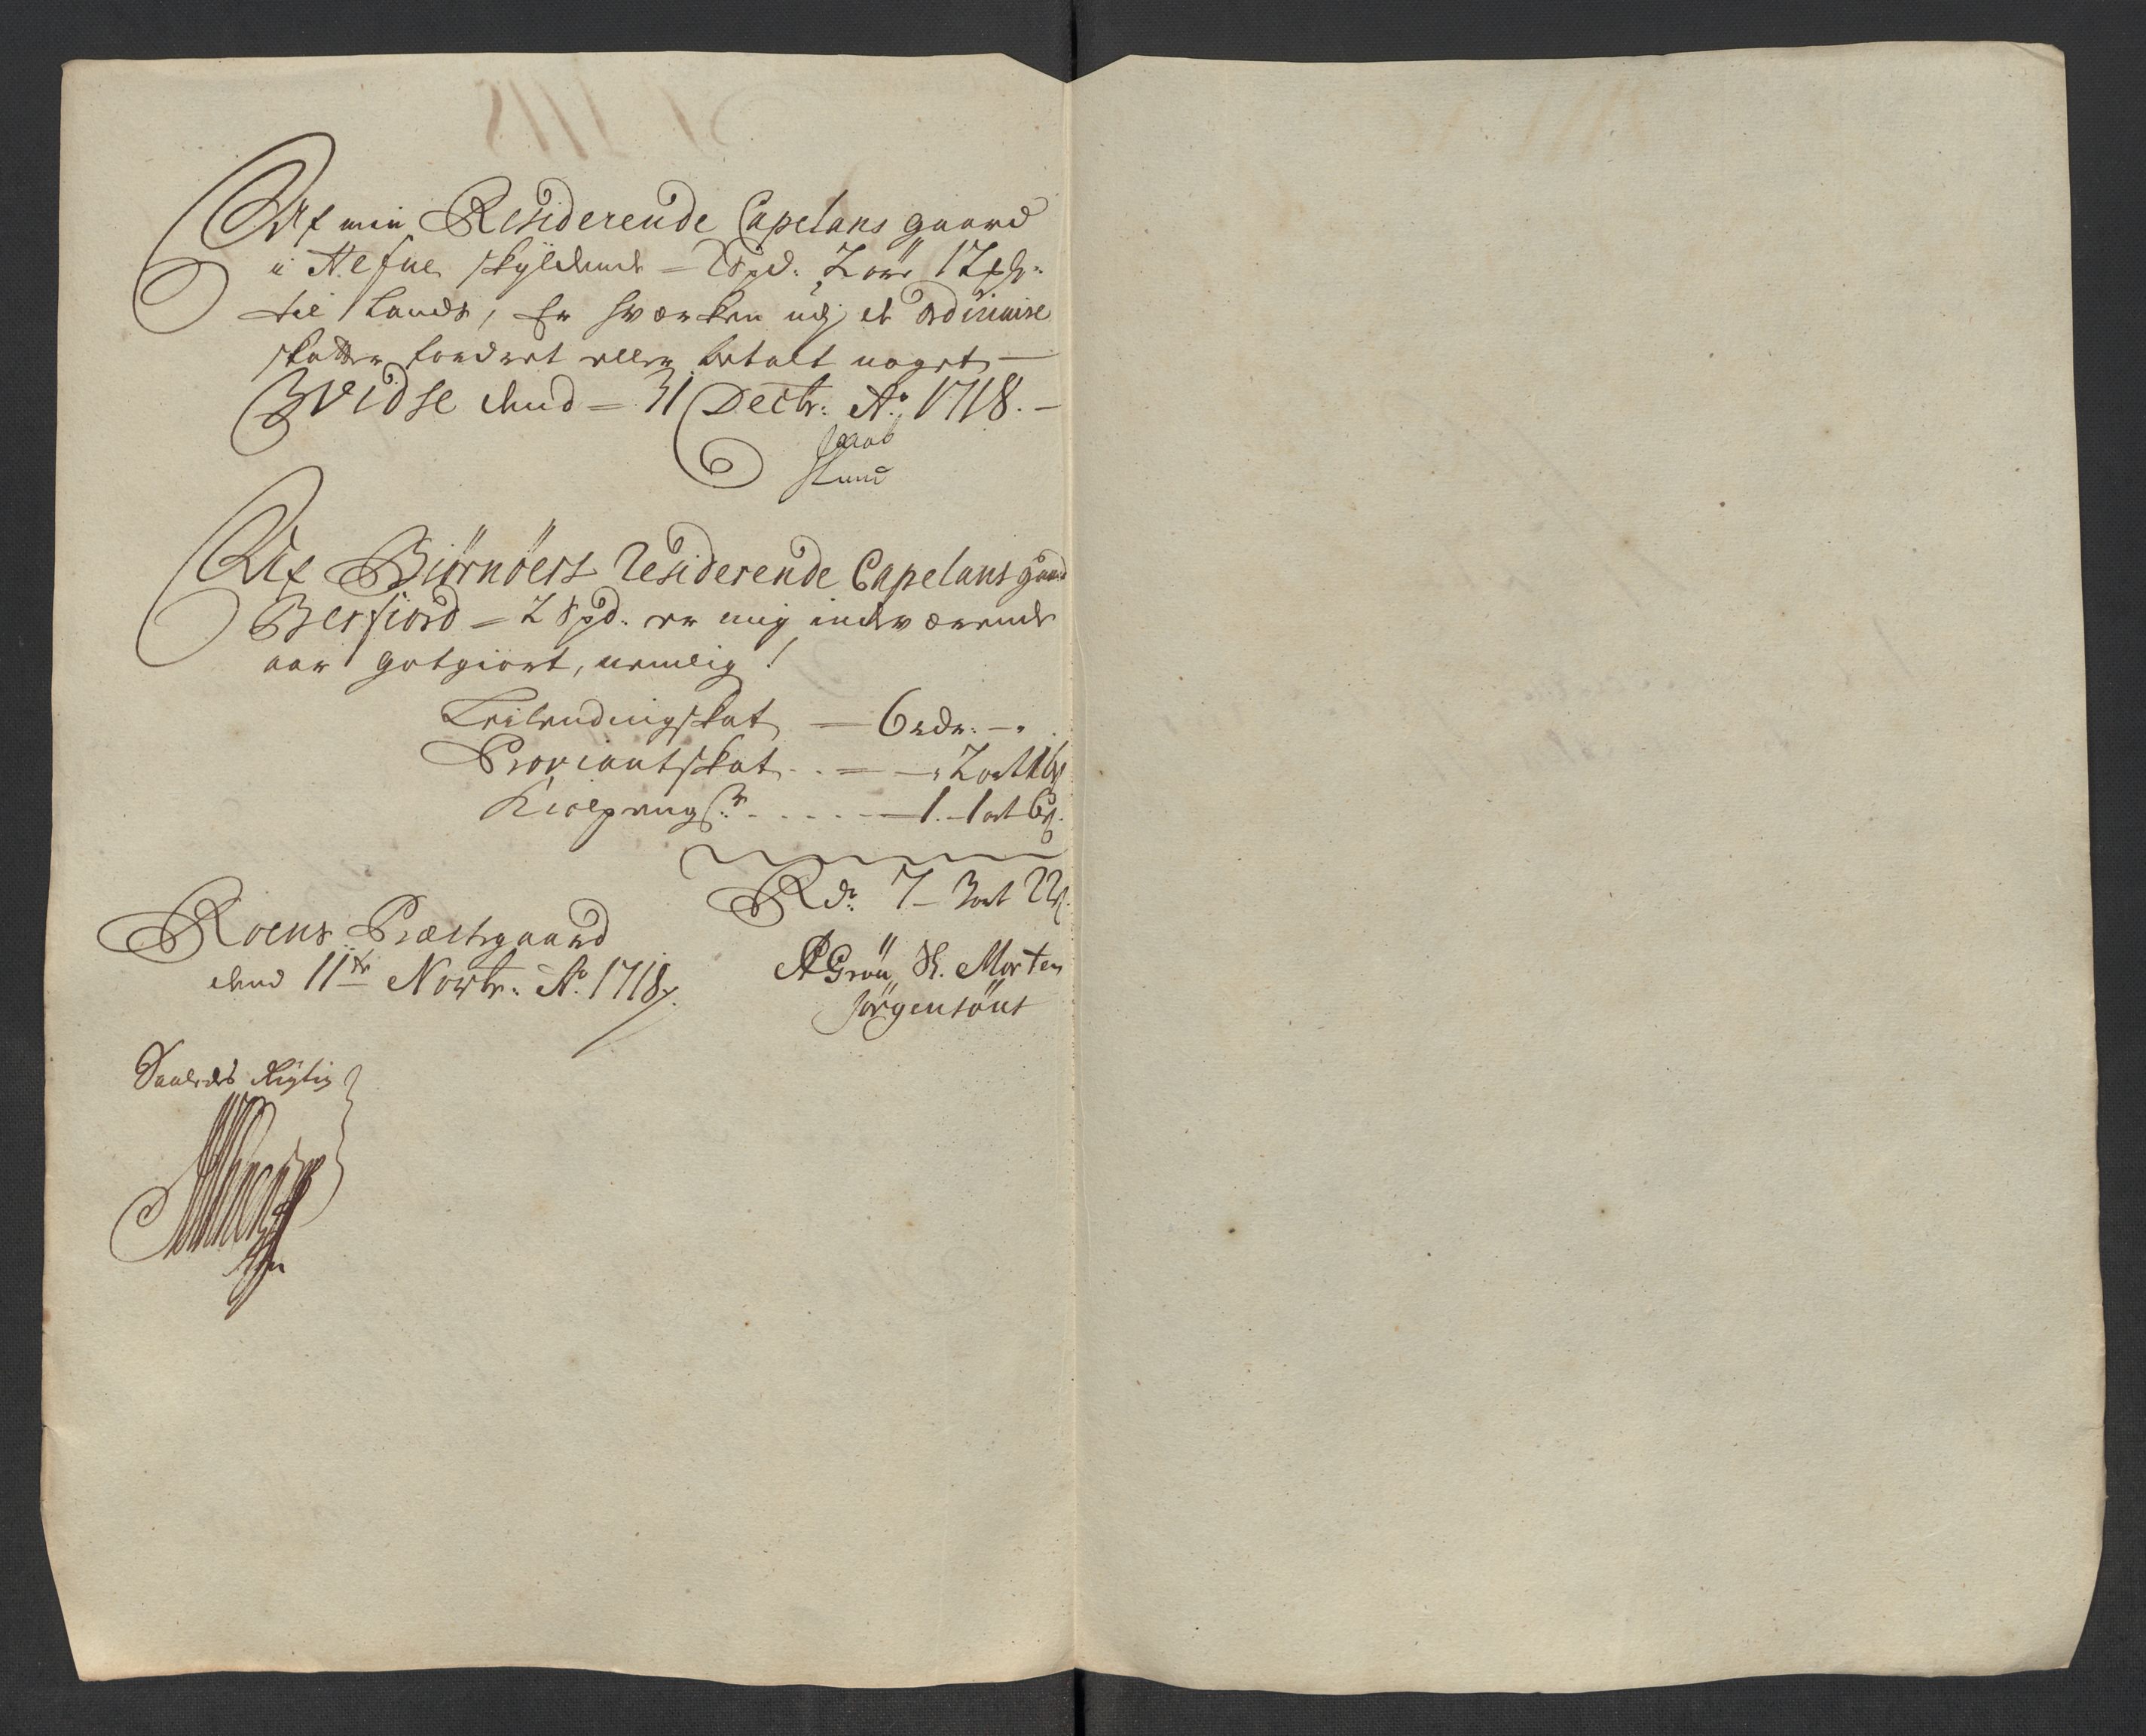 Af min Residerende Capelans gaard
i Hefne skyldende = 2 Spd. 2 ører 12 
til Lands, Er hværken udj de ordinaire
skatter fordret eller betalt noget —
Hvidse dend = 31 Decbr: Ao: 1718. —
Jacob
Lund
Af Biørnøers Residerende Capelans gaard
Besfiord = 2 Spd. er mig indeværende
aar gotgiort, nemlig!
Leilendingskat — 6 rdr. — „
Proviantskat . . = — „ 2 ort 16 s
Kiolpengs: . . . . . — 1. – 1 ort 6 s.
Rdr: 7 – 3 ort 22 s.
Roens Præstegaard
dend 11te Novbr: Ao. 1718.
AGrön S. Morten
Jörgensöns
Saaledes Rigtig